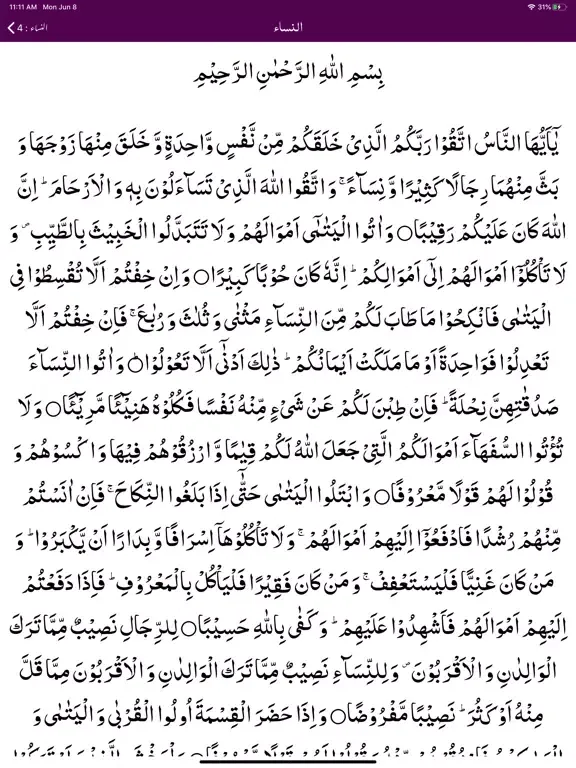 11:11 AM Mon Jun 8 31%
النساء : 4 النساء
بِسْمِ اللهِ الرَّحْمٰنِ الرَّحِيْمِ
يٰۤاَيُّهَا النَّاسُ اتَّقُوْا رَبَّكُمُ الَّذِىْ خَلَقَكُمْ مِّنْ نَّفْسٍ وَّاحِدَةٍ وَّ خَلَقَ مِنْهَا زَوْجَهَا وَ
بَثَّ مِنْهُمَا رِجَالًا كَثِيْرًا وَّ نِسَآءً ۚ وَ اتَّقُوا اللهَ الَّذِىْ تَسَآءَلُوْنَ بِهٖ وَ الْاَرْحَامَ ؕ اِنَّ
اللهَ كَانَ عَلَيْكُمْ رَقِيْبًا○ وَ اٰتُوا الْيَتٰمٰٓى اَمْوَالَهُمْ وَ لَا تَتَبَدَّلُوا الْخَبِيْثَ بِالطَّيِّبِ ۪ وَ
لَا تَاْكُلُوْۤا اَمْوَالَهُمْ اِلٰٓى اَمْوَالِكُمْ ؕ اِنَّهٗ كَانَ حُوْبًا كَبِيْرًا○ وَ اِنْ خِفْتُمْ اَلَّا تُقْسِطُوْا فِى
الْيَتٰمٰى فَانْكِحُوْا مَا طَابَ لَكُمْ مِّنَ النِّسَآءِ مَثْنٰى وَ ثُلٰثَ وَ رُبٰعَ ۚ فَاِنْ خِفْتُمْ اَلَّا
تَعْدِلُوْا فَوَاحِدَةً اَوْ مَا مَلَكَتْ اَيْمَانُكُمْ ؕ ذٰلِكَ اَدْنٰٓى اَلَّا تَعُوْلُوْا○ؕ وَ اٰتُوا النِّسَآءَ
صَدُقٰتِهِنَّ نِحْلَةً ؕ فَاِنْ طِبْنَ لَكُمْ عَنْ شَىْءٍ مِّنْهُ نَفْسًا فَكُلُوْهُ هَنِيْٓئًا مَّرِيْٓئًا○ وَ لَا
تُؤْتُوا السُّفَهَآءَ اَمْوَالَكُمُ الَّتِىْ جَعَلَ اللهُ لَكُمْ قِيٰمًا وَّ ارْزُقُوْهُمْ فِيْهَا وَ اكْسُوْهُمْ وَ
قُوْلُوْا لَهُمْ قَوْلًا مَّعْرُوْفًا○ وَ ابْتَلُوا الْيَتٰمٰى حَتّٰٓى اِذَا بَلَغُوا النِّكَاحَ ۚ فَاِنْ اٰنَسْتُمْ
مِّنْهُمْ رُشْدًا فَادْفَعُوْۤا اِلَيْهِمْ اَمْوَالَهُمْ ۚ وَ لَا تَاْكُلُوْهَاۤ اِسْرَافًا وَّ بِدَارًا اَنْ يَّكْبَرُوْا ؕ وَ
مَنْ كَانَ غَنِيًّا فَلْيَسْتَعْفِفْ ۚ وَ مَنْ كَانَ فَقِيْرًا فَلْيَاْكُلْ بِالْمَعْرُوْفِ ؕ فَاِذَا دَفَعْتُمْ
اِلَيْهِمْ اَمْوَالَهُمْ فَاَشْهِدُوْا عَلَيْهِمْ ؕ وَ كَفٰى بِاللهِ حَسِيْبًا○ لِلرِّجَالِ نَصِيْبٌ مِّمَّا تَرَكَ
الْوَالِدٰنِ وَ الْاَقْرَبُوْنَ ۪ وَ لِلنِّسَآءِ نَصِيْبٌ مِّمَّا تَرَكَ الْوَالِدٰنِ وَ الْاَقْرَبُوْنَ مِمَّا قَلَّ
مِنْهُ اَوْ كَثُرَ ؕ نَصِيْبًا مَّفْرُوْضًا○ وَ اِذَا حَضَرَ الْقِسْمَةَ اُولُوا الْقُرْبٰى وَ الْيَتٰمٰى وَ